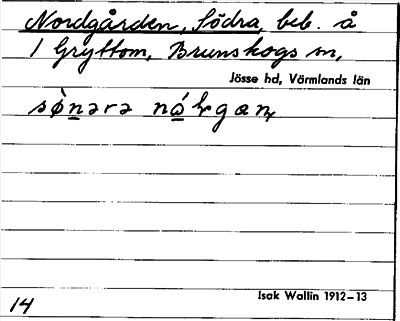 Nordgården, Södra, beb. å
1 Gryttom, Brunskogs sn,
Jösse hd, Värmlands län
Isak Wallin 1912–13
14